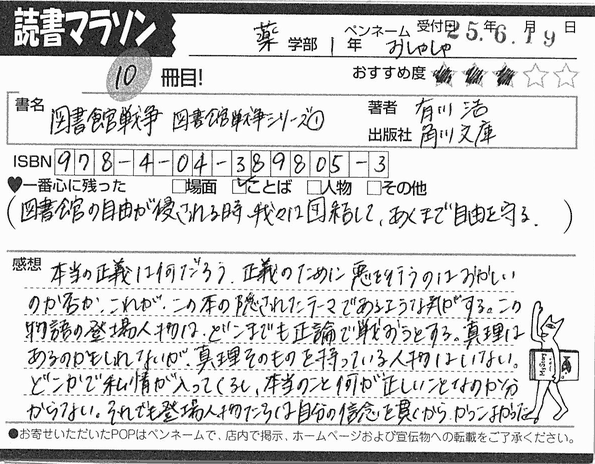 読書マラソン
薬 学部 1 年 ペンネーム おしゃしゃ 受付日 25年 6月 19日
10 冊目!
おすすめ度 ★★★☆☆
書名 図書館戦争 図書館戦争シリーズ① 著者 有川 浩
出版社 角川文庫
ISBN 978-4-04-389805-3
♥一番心に残った □場面 ☑ことば □人物 □その他
(図書館の自由が侵される時、我々は団結して、あくまで自由を守る。)
感想 本当の正義は何だろう。正義のために悪を行うのはおかしい
のか否か、これが、この本の隠されたテーマであるような気がする。この
物語の登場人物は、どこまでも正論で戦おうとする。真理は
あるのかもしれないが、真理そのものを持っている人物はいない。
どこかで私情が入ってくるし、本当のこと何が正しいことなのか分
からない。それでも登場人物たちは自分の信念を貫くから、かっこよかった。
●お寄せいただいたPOPはペンネームで、店内で掲示、ホームページおよび宣伝物への転載をご了承ください。